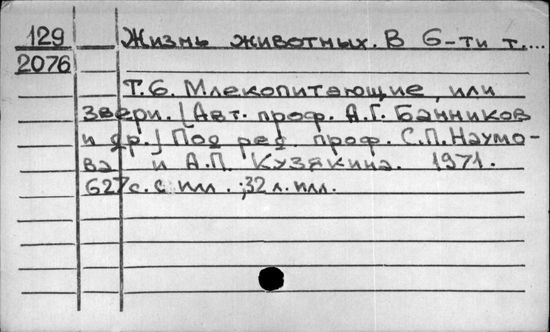 129 Жизнь животных. В 6-ти т....
2076
Т.6. Млекопитающие, или
звери. [Авт. проф. А.Г. Банников
и др.] Под ред. проф. С.П. Наумо-
ва и А.П. Кузякина. 1971.
627 с. с илл.; 32 л. илл.